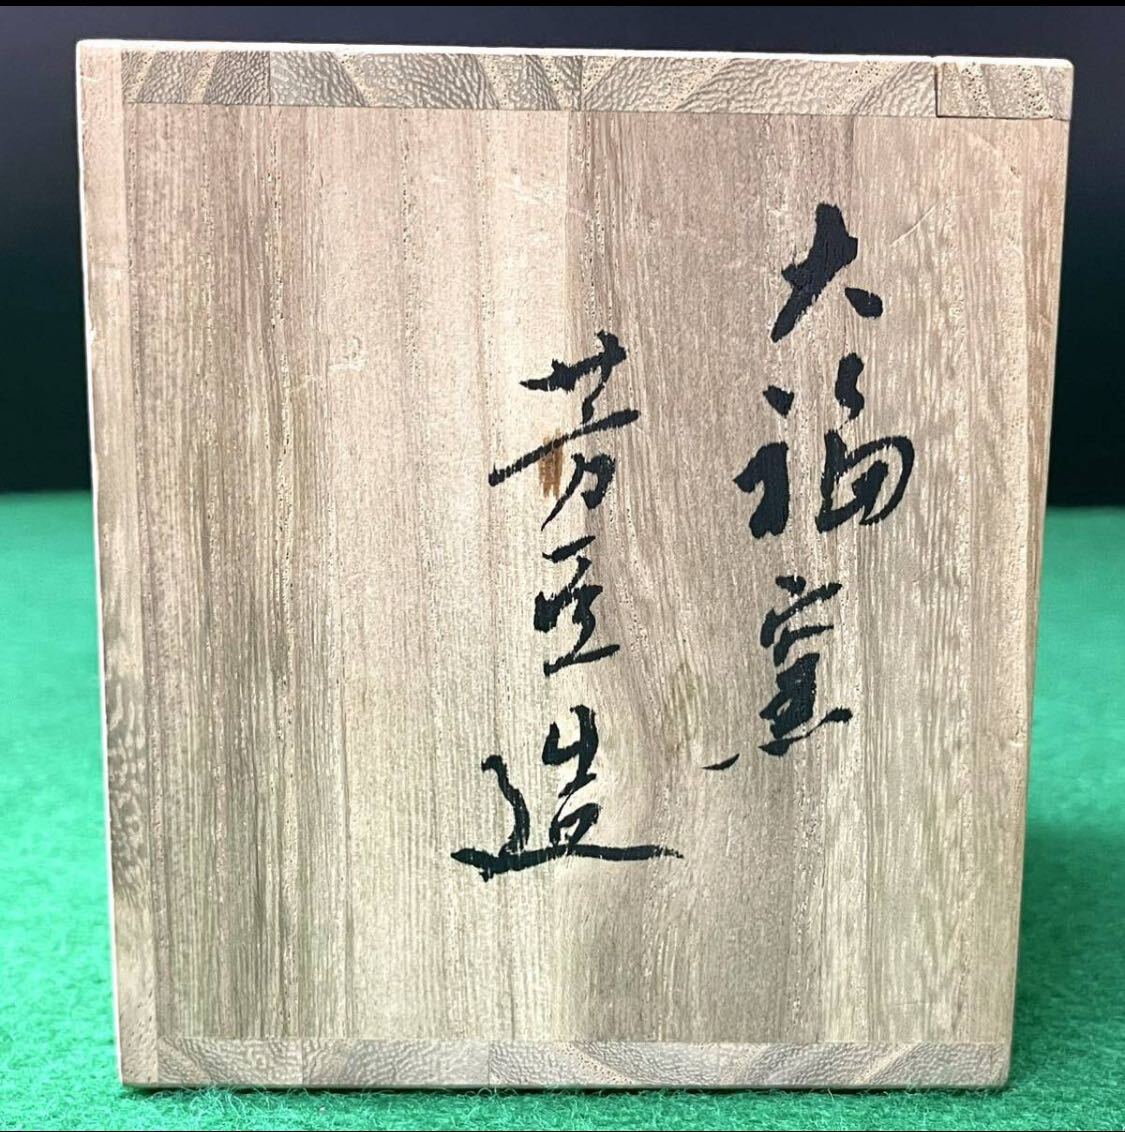 大福窯
芳亘造